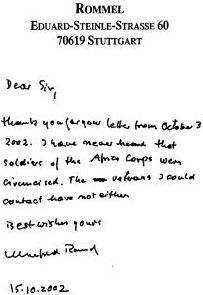 ROMMEL
EDUARD-STEINLE-STRASSE 60
70619 STUTTGART
Dear Sir,
thank you for your letter from October 3
2002. I have never heard that
soldiers of the Africa Corps were
circumcised. The veterans I could
contact have not either
Best wishes yours
Manfred Rommel
15.10.2002